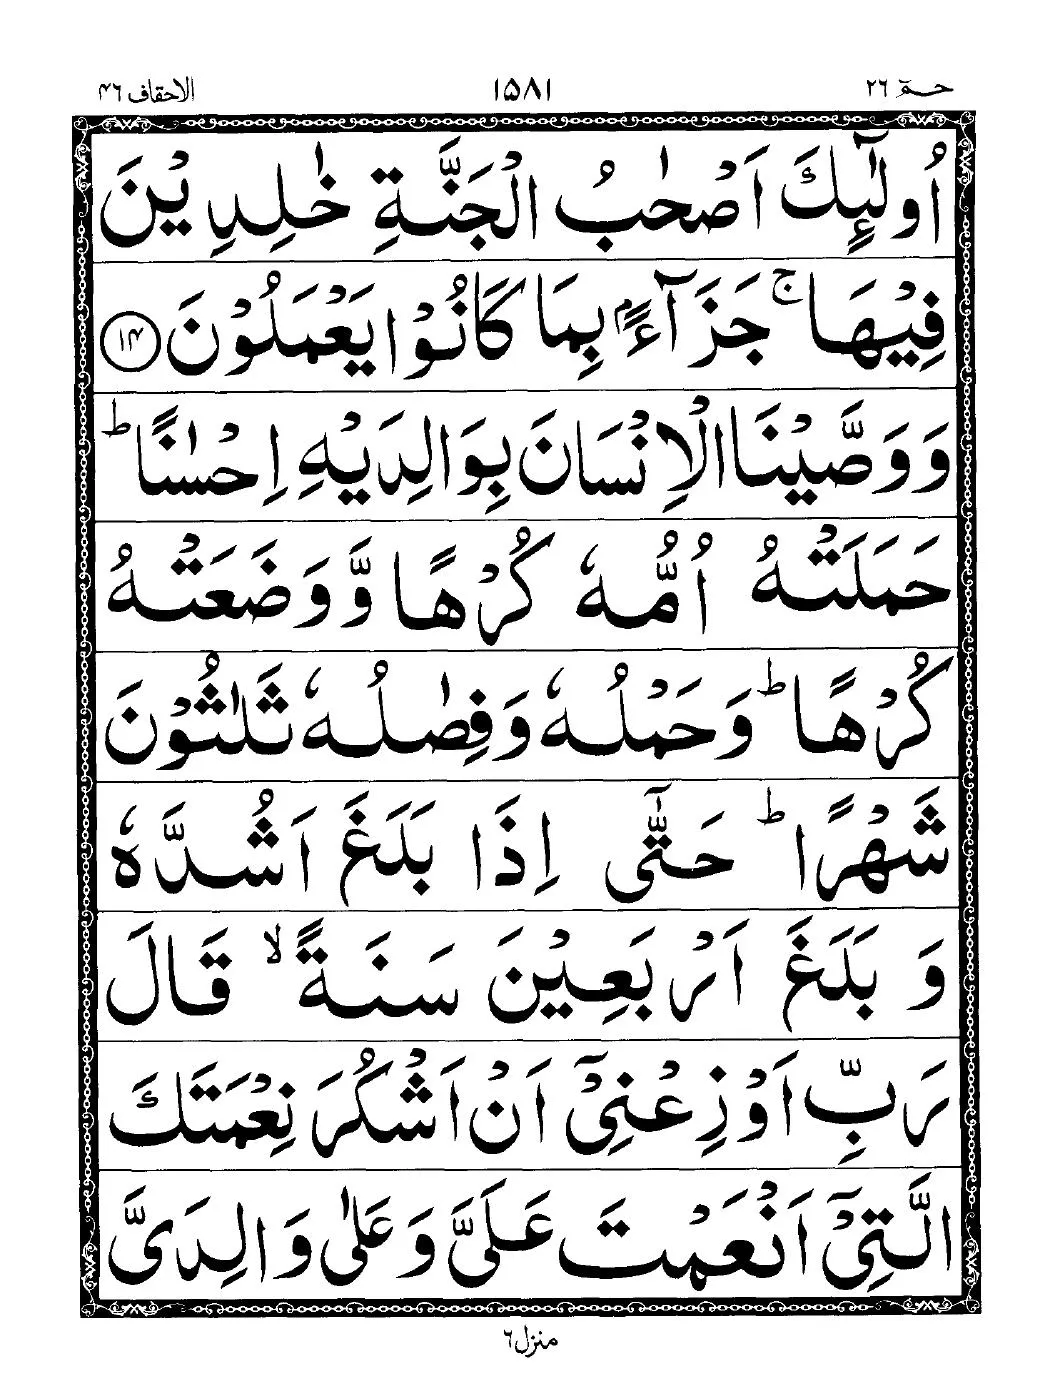 حٰمٓ ٢٦ ١٥٨١ الاحقاف ٤٦
اُولٰٓئِكَ اَصْحٰبُ الْجَنَّةِ خٰلِدِيْنَ
فِيْهَا ۚ جَزَآءًۢ بِمَا كَانُوْا يَعْمَلُوْنَ ١٤
وَوَصَّيْنَا الْاِنْسَانَ بِوَالِدَيْهِ اِحْسٰنًا ؕ
حَمَلَتْهُ اُمُّهٗ كُرْهًا وَّوَضَعَتْهُ
كُرْهًا ؕ وَحَمْلُهٗ وَفِصٰلُهٗ ثَلٰثُوْنَ
شَهْرًا ؕ حَتّٰٓى اِذَا بَلَغَ اَشُدَّهٗ
وَ بَلَغَ اَرْبَعِيْنَ سَنَةً ۙ قَالَ
رَبِّ اَوْزِعْنِيْٓ اَنْ اَشْكُرَ نِعْمَتَكَ
الَّتِيْٓ اَنْعَمْتَ عَلَيَّ وَعَلٰى وَالِدَيَّ
منزل ٦